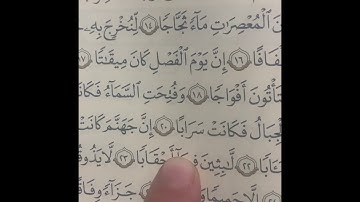 نَ ٱلْمُعْصِرَٰتِ مَآءً ثَجَّاجًا ١٤ لِّنُخْرِجَ بِهِۦ
لْفَافًا ١٦ إِنَّ يَوْمَ ٱلْفَصْلِ كَانَ مِيقَٰتًا ١٧
تَأْتُونَ أَفْوَاجًا ١٨ وَفُتِحَتِ ٱلسَّمَآءُ فَكَانَـ
لْجِبَالُ فَكَانَتْ سَرَابًا ٢٠ إِنَّ جَهَنَّمَ كَانَتْ
ـَٔابًا ٢٢ لَّٰبِثِينَ فِيهَآ أَحْقَابًا ٢٣ لَّا يَذُوقُو
إِلَّا حَمِيمًا ٢٥ جَزَآءً وِفَاقًا